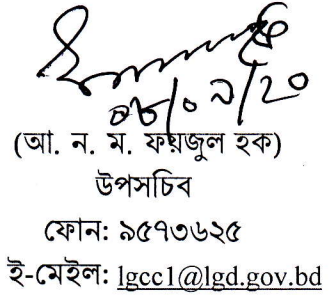 ০৮/০৯/২০
(আ. ন. ম. ফয়জুল হক)
উপসচিব
ফোন: ৯৫৭৩৬২৫
ই-মেইল: lgcc1@lgd.gov.bd